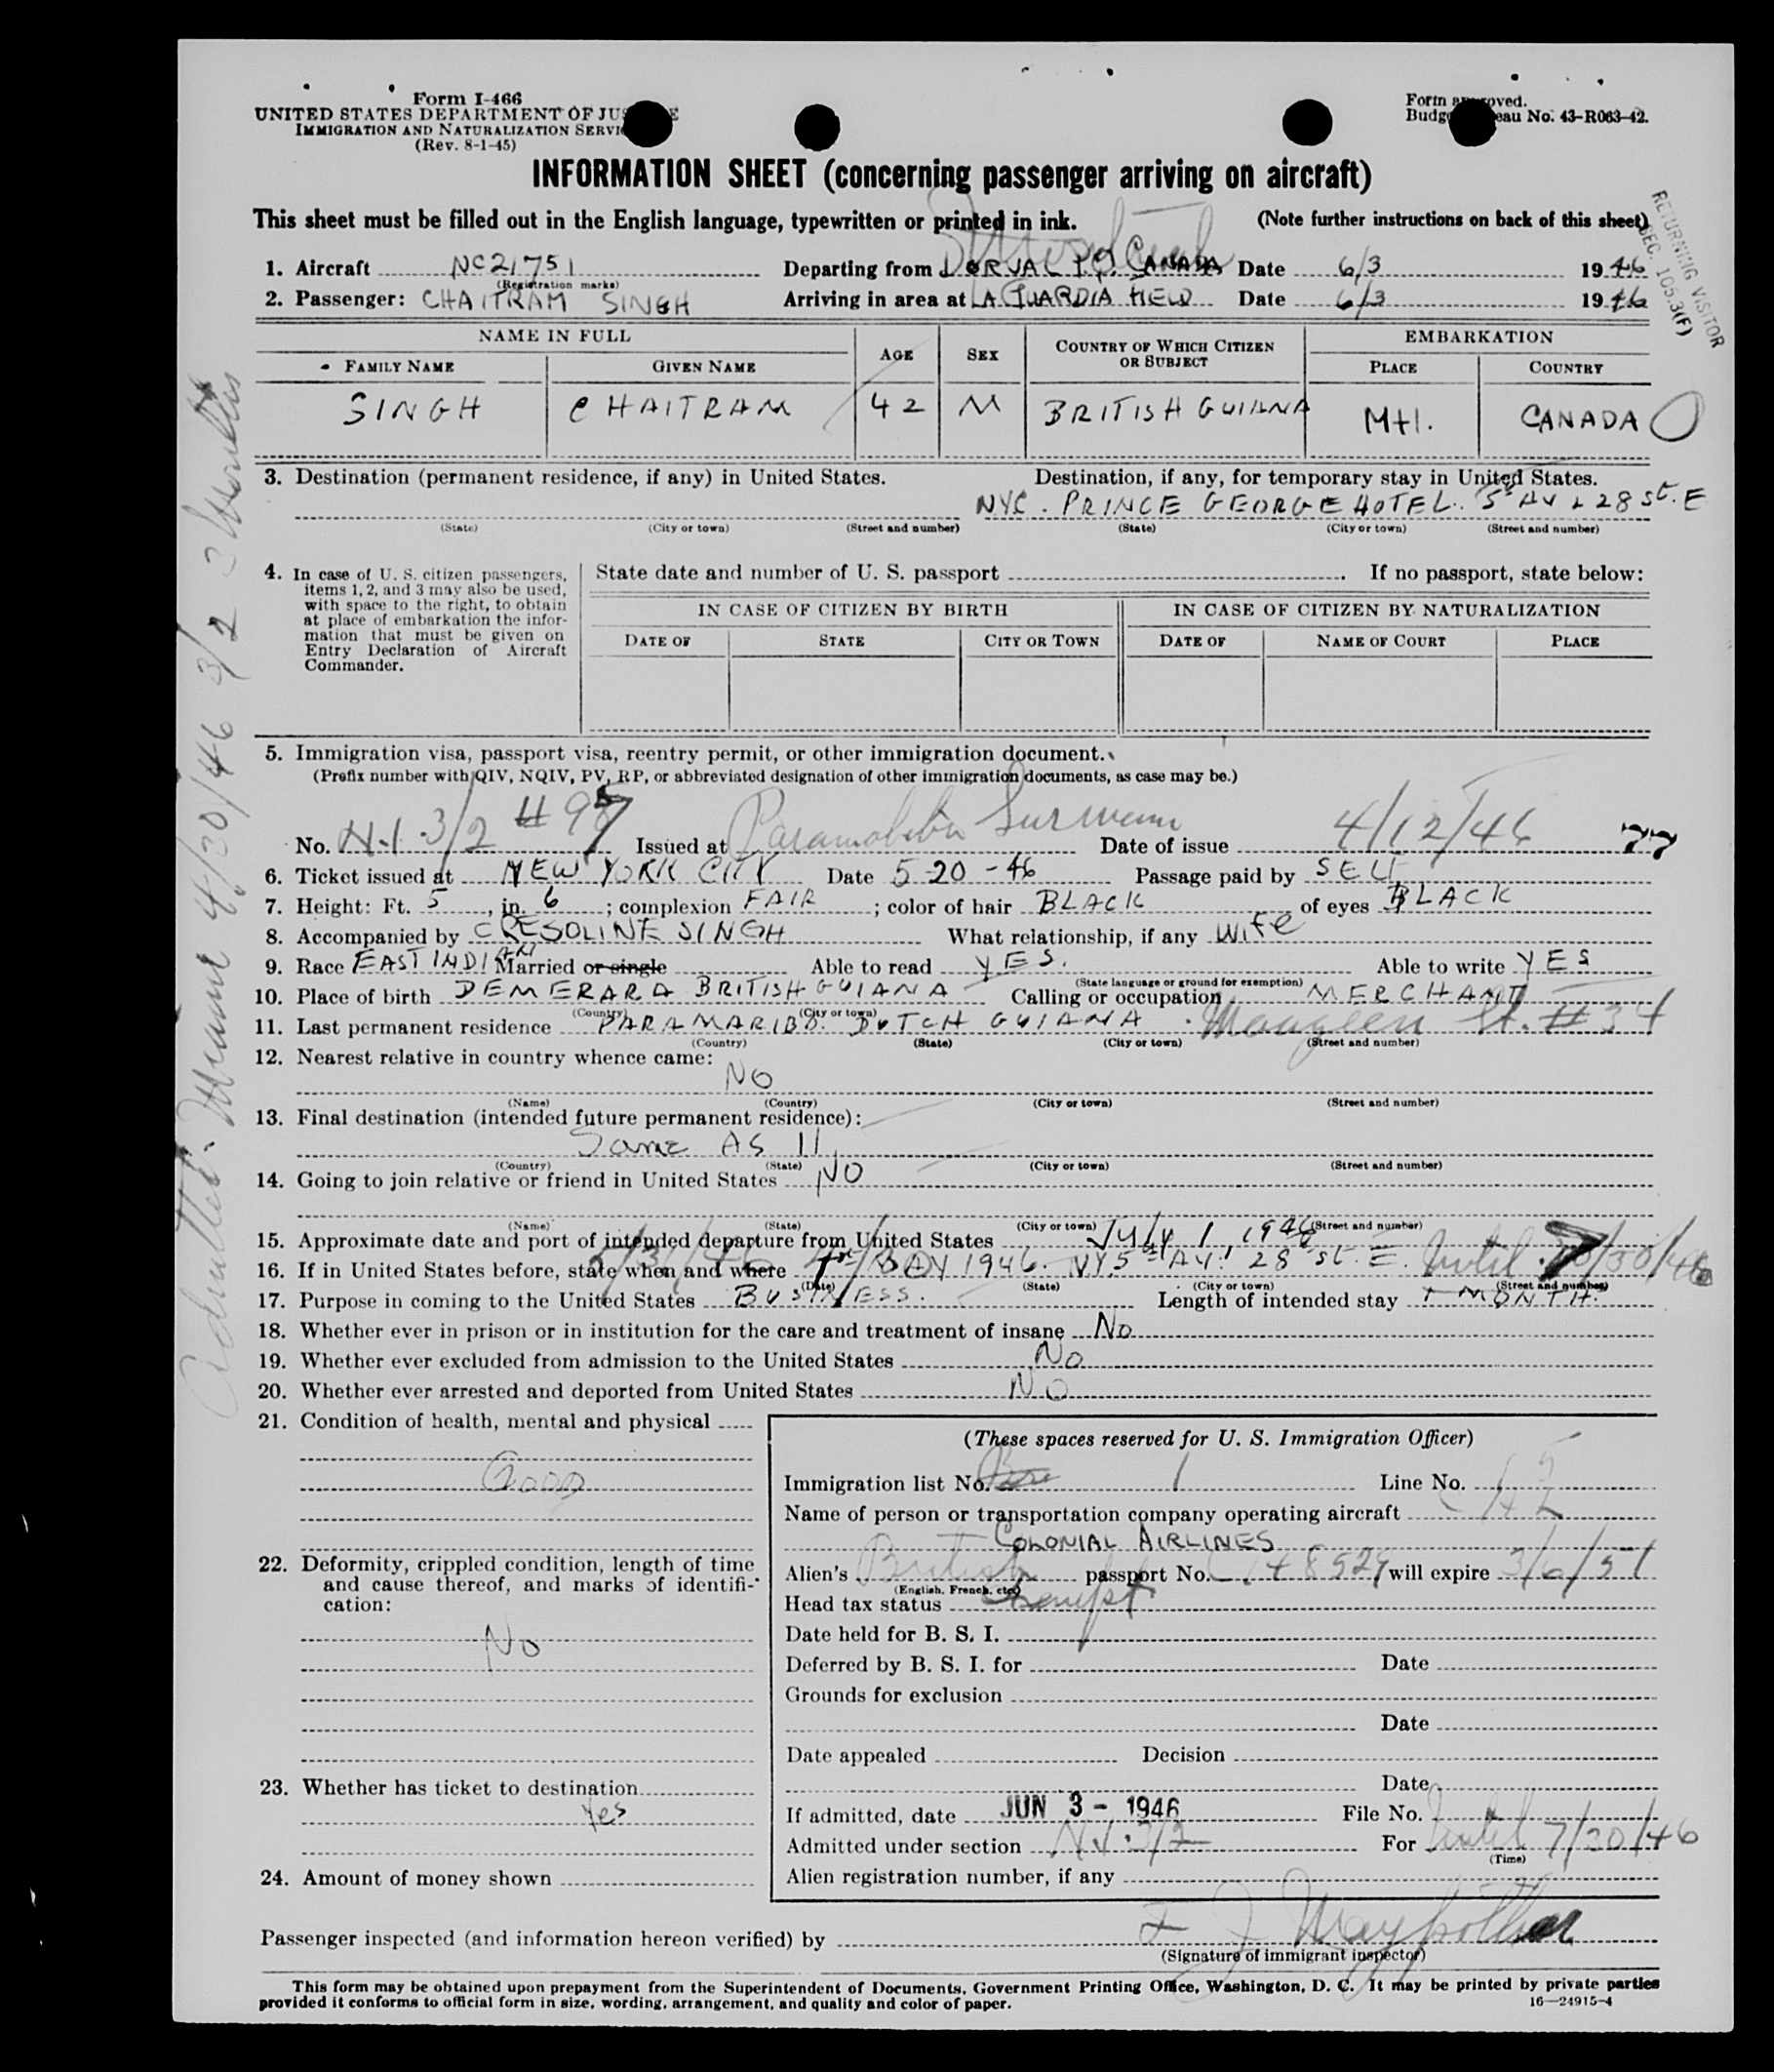 Form I-466
UNITED STATES DEPARTMENT OF JUS E
IMMIGRATION AND NATURALIZATION SERVI
(Rev. 8-1-45)
Form approved.
Budg eau No. 43-R063-42.
INFORMATION SHEET (concerning passenger arriving on aircraft)
This sheet must be filled out in the English language, typewritten or printed in ink. (Note further instructions on back of this sheet)
RETURNING VISITOR
SEC. 105.3(F)
1. Aircraft NC21751 Departing from DORVAL P.Q. CANADA Date 6/3 1946
(Registration marks)
2. Passenger: CHAITRAM SINGH Arriving in area at LA GUARDIA FIELD Date 6/3 1946
NAME IN FULL AGE SEX COUNTRY OF WHICH CITIZEN OR SUBJECT EMBARKATION
FAMILY NAME GIVEN NAME PLACE COUNTRY
SINGH CHAITRAM 42 M BRITISH GUIANA Mtl. CANADA
3. Destination (permanent residence, if any) in United States. Destination, if any, for temporary stay in United States.
NYC. PRINCE GEORGE HOTEL. 5 AV & 28 St. E
(State) (City or town) (Street and number) (State) (City or town) (Street and number)
4. In case of U. S. citizen passengers, items 1, 2, and 3 may also be used, with space to the right, to obtain at place of embarkation the information that must be given on Entry Declaration of Aircraft Commander.
State date and number of U. S. passport . If no passport, state below:
IN CASE OF CITIZEN BY BIRTH IN CASE OF CITIZEN BY NATURALIZATION
DATE OF STATE CITY OR TOWN DATE OF NAME OF COURT PLACE
5. Immigration visa, passport visa, reentry permit, or other immigration document.
(Prefix number with QIV, NQIV, PV, RP, or abbreviated designation of other immigration documents, as case may be.)
No. N.I. 3/2 #987 Issued at Paramaribo Surinam Date of issue 4/12/46 77
6. Ticket issued at NEW YORK CITY Date 5-20-46 Passage paid by SELF
7. Height: Ft. 5, in. 6; complexion FAIR; color of hair BLACK of eyes BLACK
8. Accompanied by CRESOLINE SINGH What relationship, if any Wife
9. Race EAST INDIAN Married or single Able to read YES. Able to write YES
(State language or ground for exemption)
10. Place of birth DEMERARA BRITISH GUIANA Calling or occupation MERCHANT
(Country) (City or town)
11. Last permanent residence PARAMARIBO. DUTCH GUIANA. St. #34
(Country) (State) (City or town) (Street and number)
12. Nearest relative in country whence came:
NO
(Name) (Country) (City or town) (Street and number)
13. Final destination (intended future permanent residence):
Same AS 11
(Country) (State) (City or town) (Street and number)
14. Going to join relative or friend in United States NO
(Name) (State) (City or town) (Street and number)
15. Approximate date and port of intended departure from United States July 1 1946
16. If in United States before, state when and where 5/31/46 MAY 1946. NY. 5th AV. 28 St. E. Until 7/30/46
(Date) (State) (City or town) (Street and number)
17. Purpose in coming to the United States BUSINESS. Length of intended stay 1 MONTH.
18. Whether ever in prison or in institution for the care and treatment of insane No
19. Whether ever excluded from admission to the United States No
20. Whether ever arrested and deported from United States NO
21. Condition of health, mental and physical
GOOD
22. Deformity, crippled condition, length of time and cause thereof, and marks of identification:
No
23. Whether has ticket to destination
Yes
24. Amount of money shown
(These spaces reserved for U. S. Immigration Officer)
Immigration list No. 1 Line No.
Name of person or transportation company operating aircraft
COLONIAL AIRLINES
Alien's British passport No. 148529 will expire 3/6/51
(English, French, etc.)
Head tax status Exempt
Date held for B. S. I.
Deferred by B. S. I. for Date
Grounds for exclusion
Date
Date appealed Decision
Date
If admitted, date JUN 3 - 1946 File No.
Admitted under section N.I. 3/2 For Until 7/30/46
(Time)
Alien registration number, if any
Passenger inspected (and information hereon verified) by
(Signature of immigrant inspector)
This form may be obtained upon prepayment from the Superintendent of Documents, Government Printing Office, Washington, D. C. It may be printed by private parties
provided it conforms to official form in size, wording, arrangement, and quality and color of paper.
16—24915-4
Admitted: Miami 4/30/46 3/2 3 Months